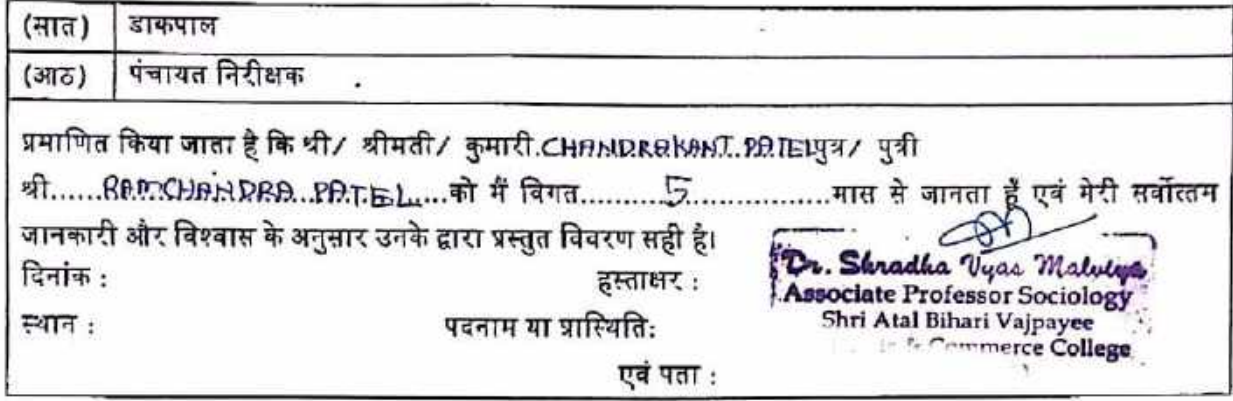 (सात) डाकपाल
(आठ) पंचायत निरीक्षक
प्रमाणित किया जाता है कि श्री/ श्रीमती/ कुमारी.CHANDRAKANT..PATELपुत्र/ पुत्री
श्री......RAMCHANDRA..PATEL....को मैं विगत...........5................मास से जानता हूँ एवं मेरी सर्वोत्तम
जानकारी और विश्वास के अनुसार उनके द्वारा प्रस्तुत विवरण सही है।
दिनांक : हस्ताक्षर :
Dr. Shradha Vyas Malviya
Associate Professor Sociology
स्थान : पदनाम या प्रास्थिति:
Shri Atal Bihari Vajpayee
Commerce College
एवं पता :